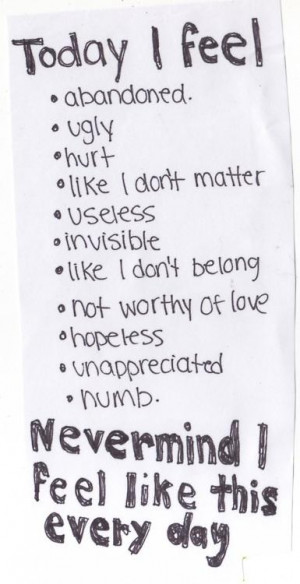 Today I feel
• abandoned.
• ugly
• hurt
• like I don't matter
• useless
• invisible
• like I don't belong
• not worthy of love
• hopeless
• unappreciated
• numb.
Nevermind I
feel like this
every day